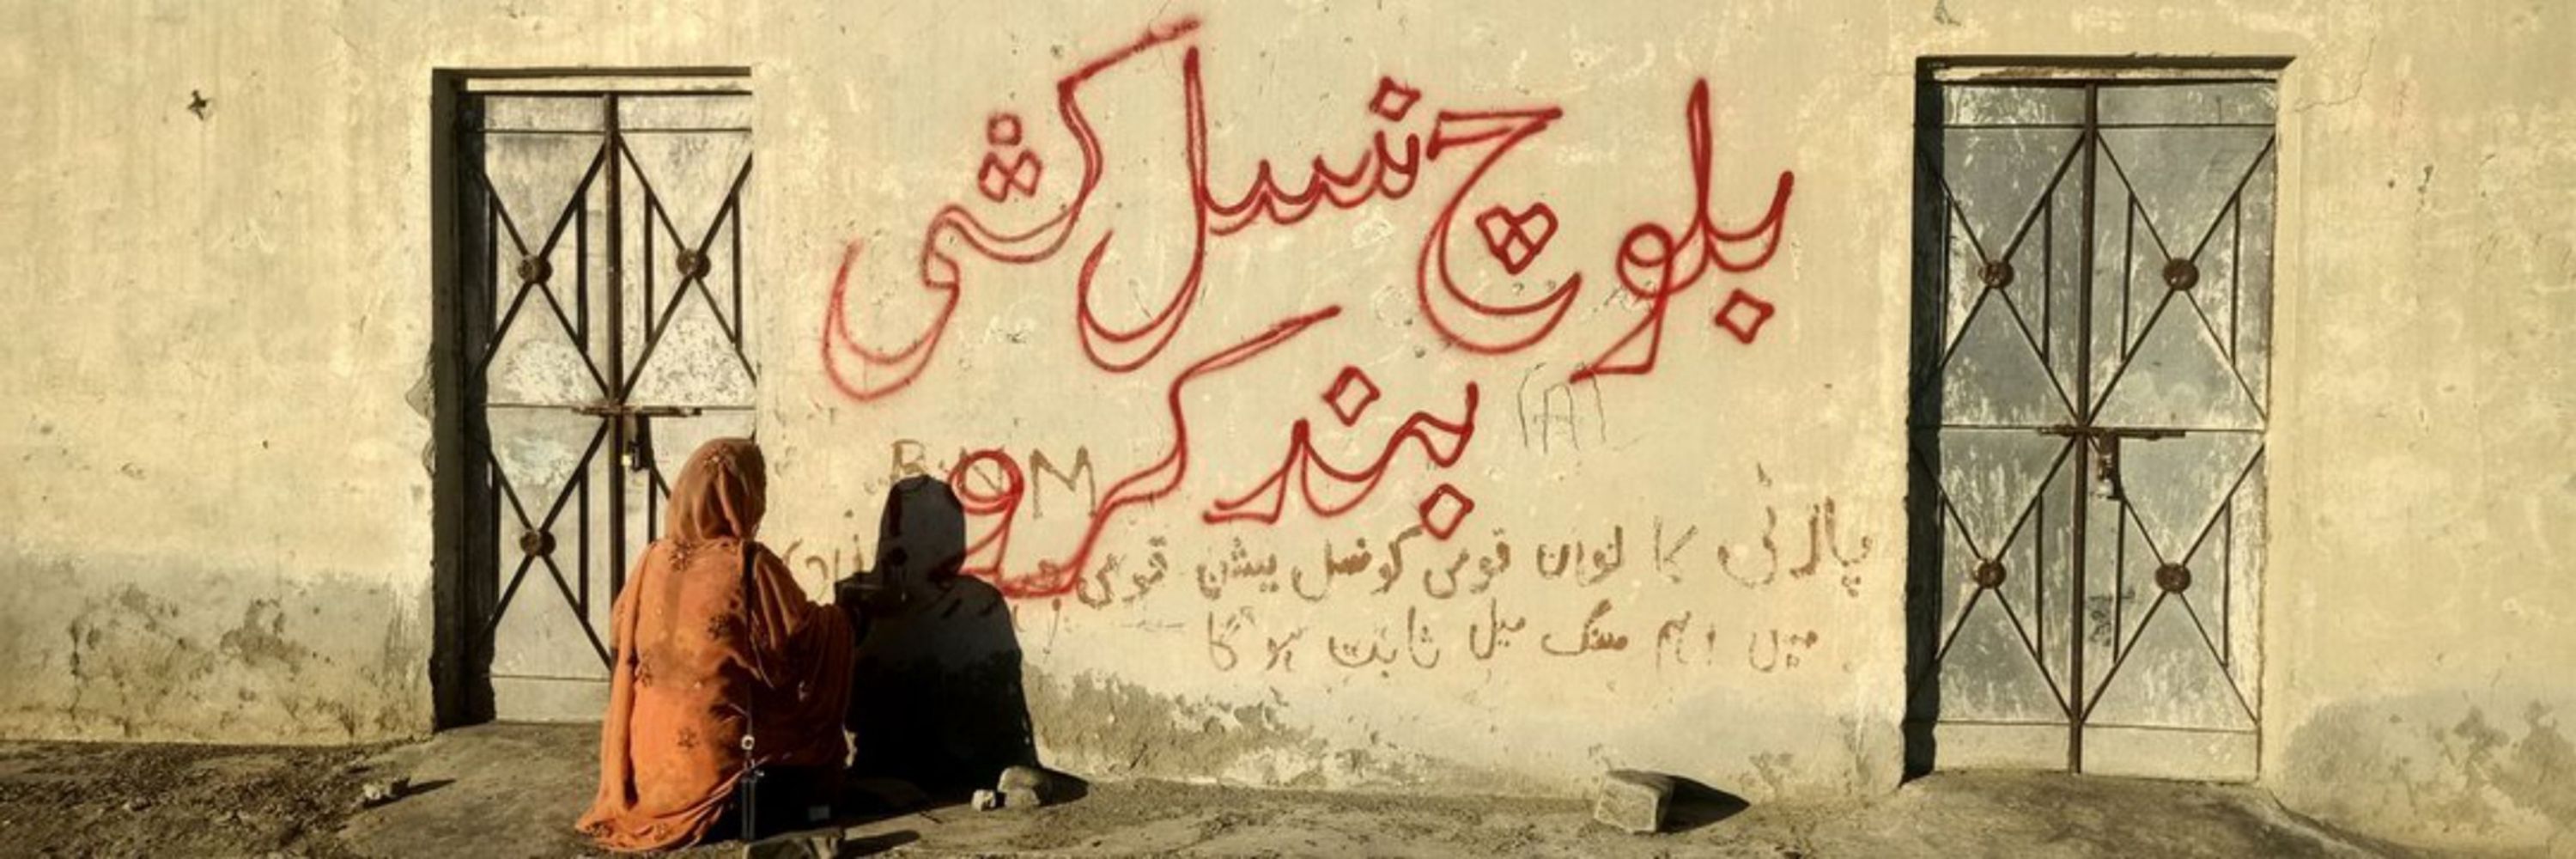 بلوچ نسل کشی
بند کرو
B N M
پارٹی کا نواں قومی کونسل سیشن قومی
میں اہم سنگ میل ثابت ہو گا